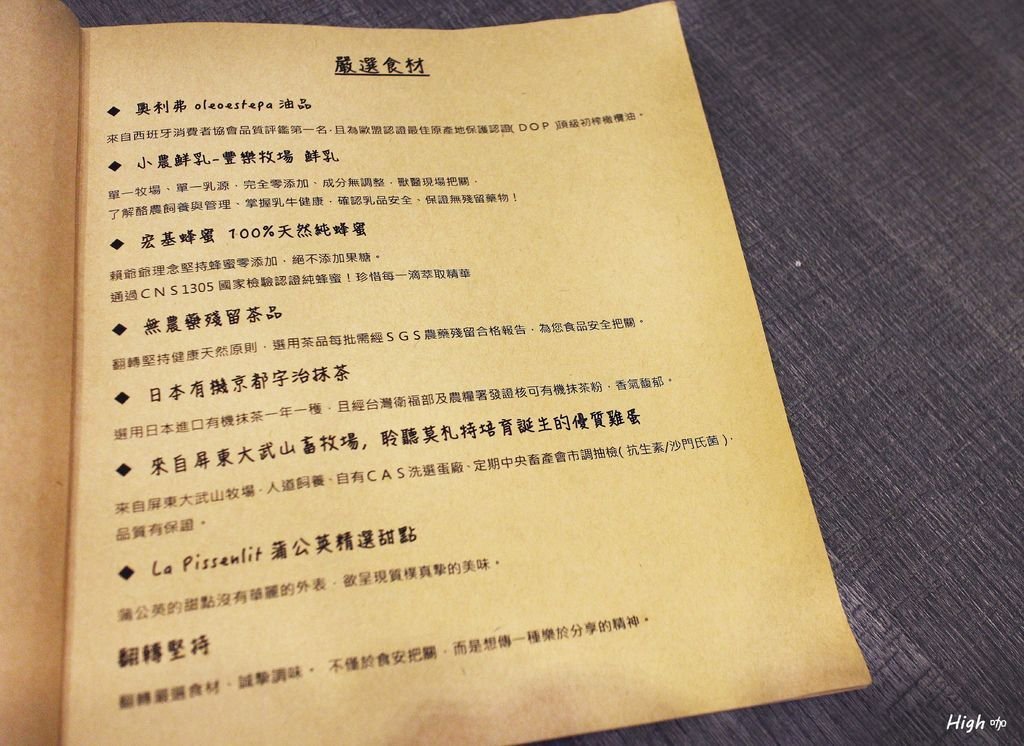 嚴選食材
◆ 奧利弗 oleoestepa 油品
來自西班牙消費者協會品質評鑑第一名，且為歐盟認證最佳原產地保護認證( DOP )頂級初榨橄欖油。
◆ 小農鮮乳-豐樂牧場 鮮乳
單一牧場、單一乳源，完全零添加、成分無調整，獸醫現場把關，
了解酪農飼養與管理、掌握乳牛健康，確認乳品安全、保證無殘留藥物！
◆ 宏基蜂蜜 100%天然純蜂蜜
賴爺爺理念堅持蜂蜜零添加，絕不添加果糖。
通過CNS1305 國家檢驗認證純蜂蜜！珍惜每一滴萃取精華
◆ 無農藥殘留茶品
翻轉堅持健康天然原則，選用茶品每批需經SGS農藥殘留合格報告，為您食品安全把關。
◆ 日本有機京都宇治抹茶
選用日本進口有機抹茶一年一穫，且經台灣衛福部及農糧署發證核可有機抹茶粉，香氣馥郁。
◆ 來自屏東大武山畜牧場, 聆聽莫札特培育誕生的優質雞蛋
來自屏東大武山牧場，人道飼養、自有CAS洗選蛋廠、定期中央畜產會市調抽檢( 抗生素/沙門氏菌 )，
品質有保證。
◆ La Pissenlit 蒲公英精選甜點
蒲公英的甜點沒有華麗的外表，欲呈現質樸真摯的美味。
翻轉堅持
翻轉嚴選食材，誠摯調味。 不僅於食安把關，而是想傳一種樂於分享的精神。
High 咖